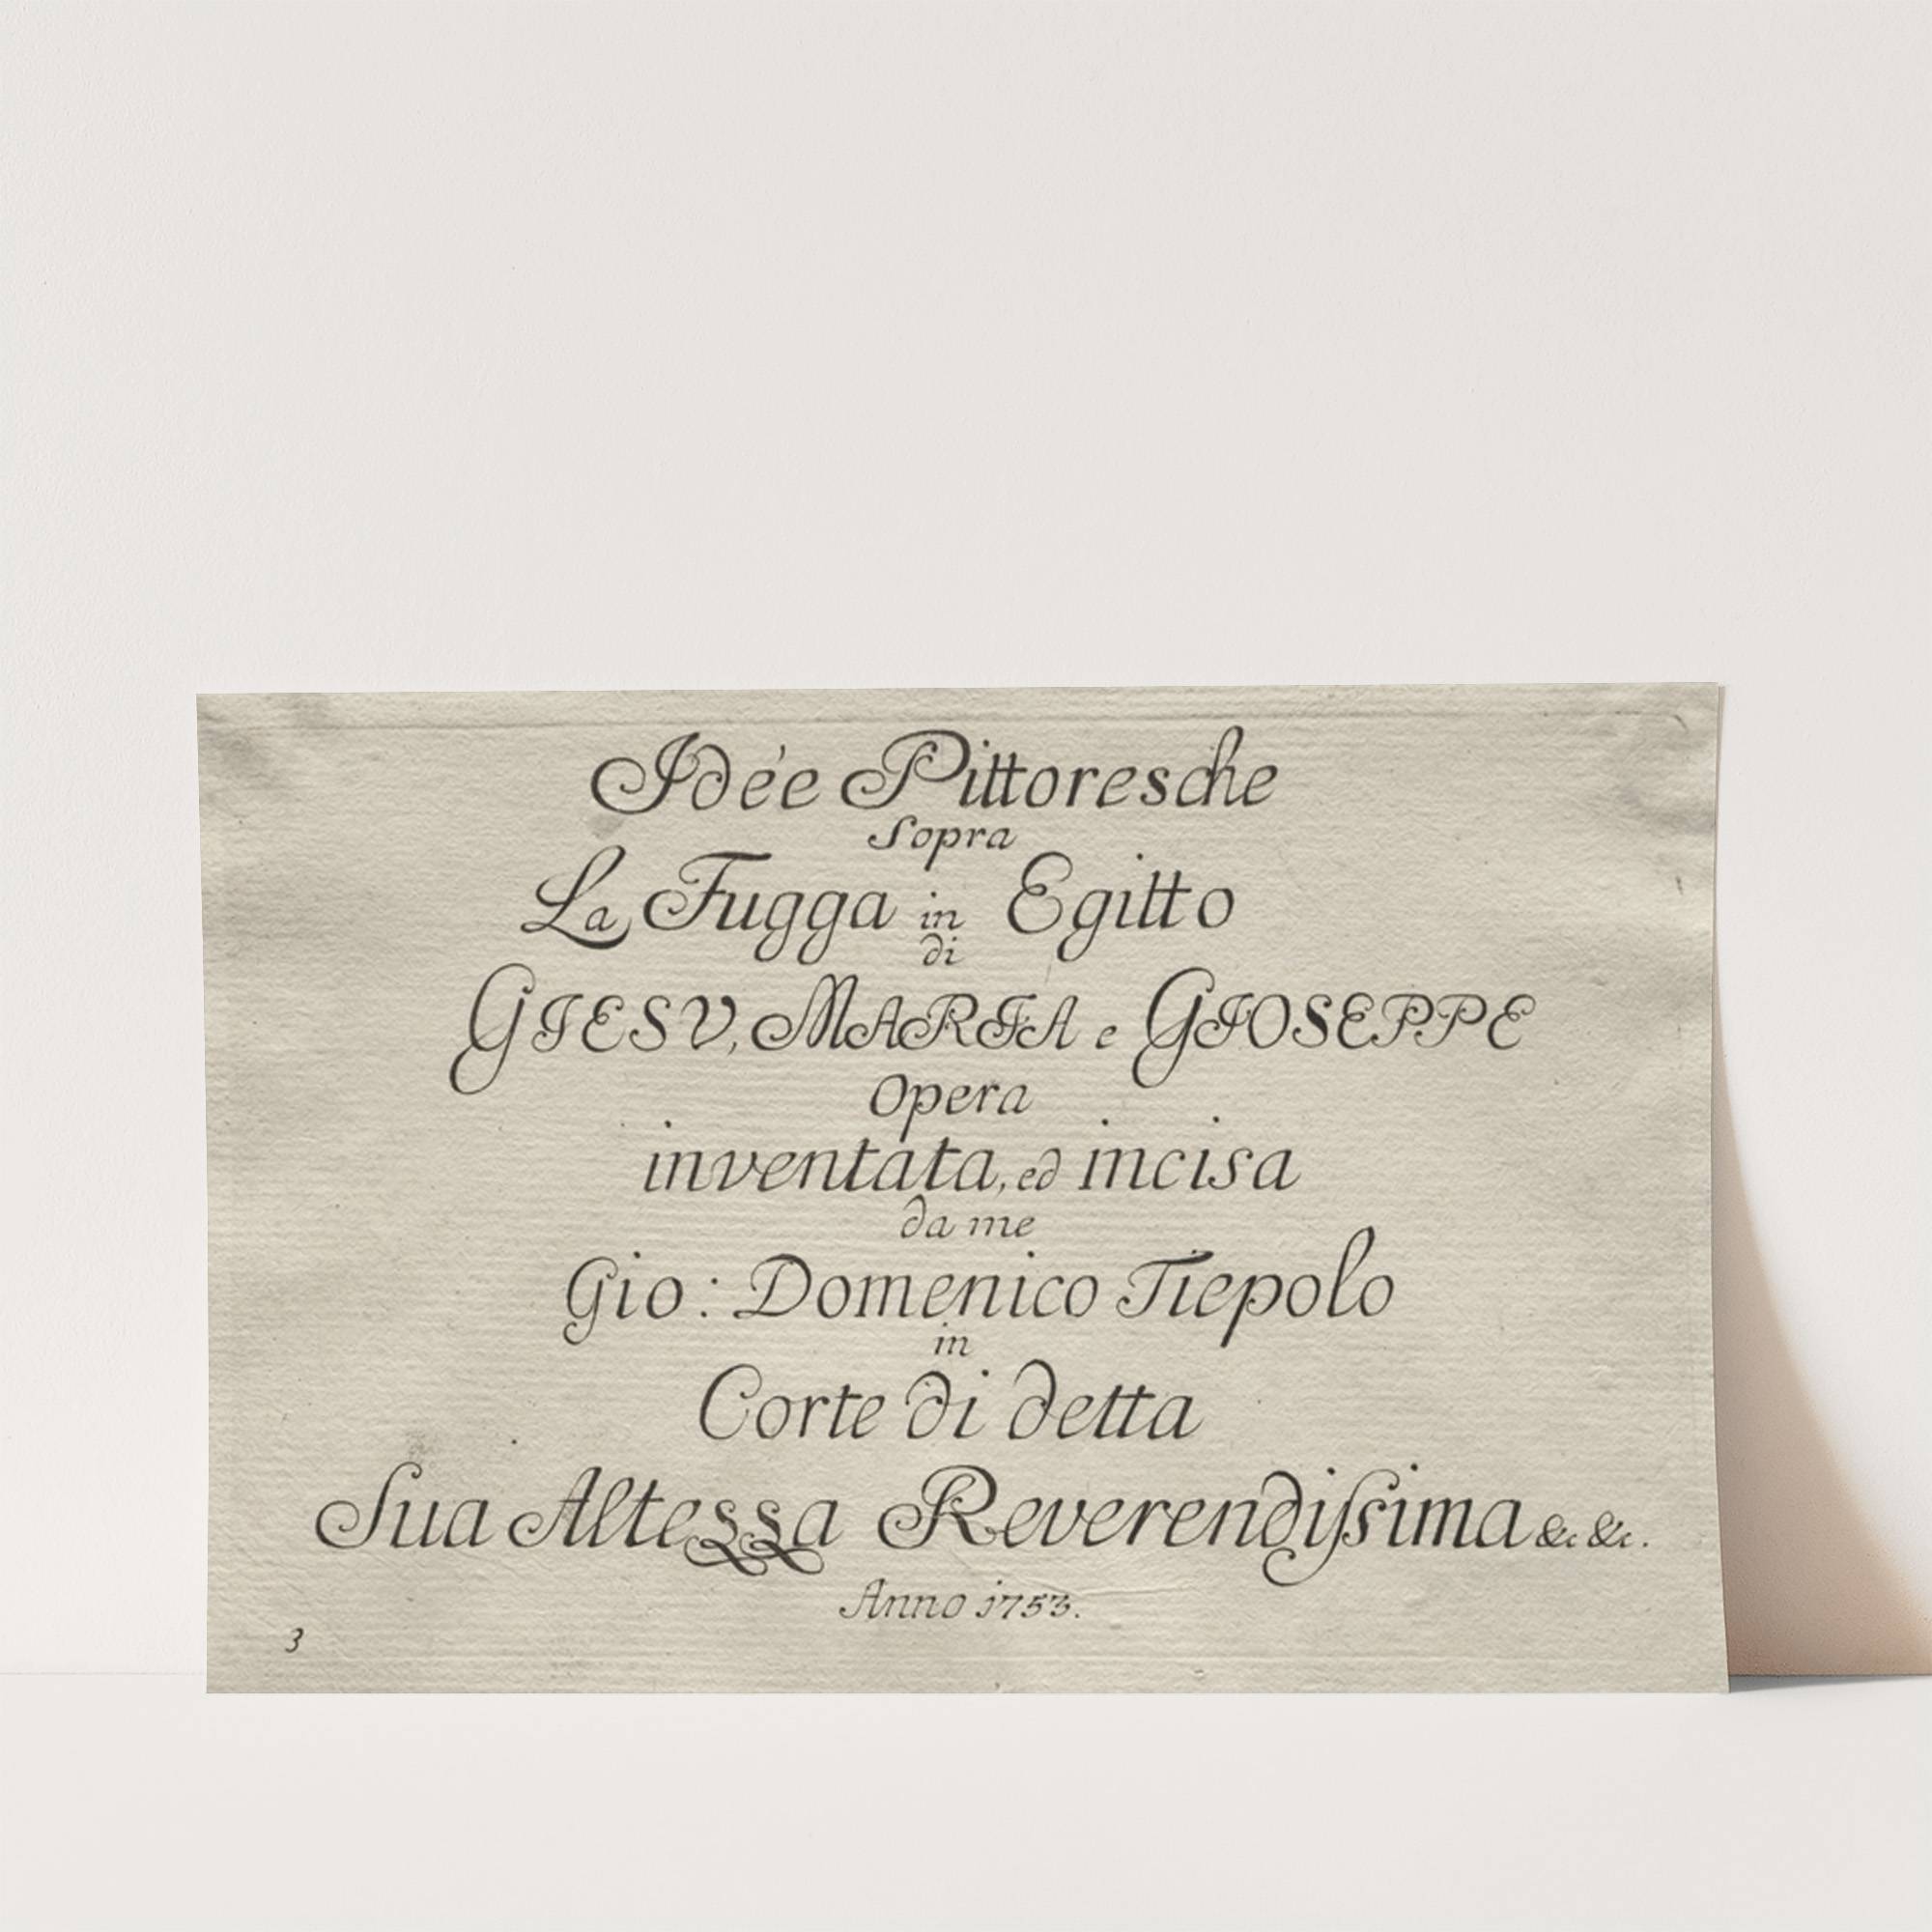 Idée Pittoresche
Sopra
La Fugga in Egitto
di
GIESV, MARIA e GIOSEPPE
Opera
inventata, ed incisa
da me
Gio: Domenico Tiepolo
in
Corte di detta
Sua Altezza Reverendiſsima &c &c.
Anno 1753.
3